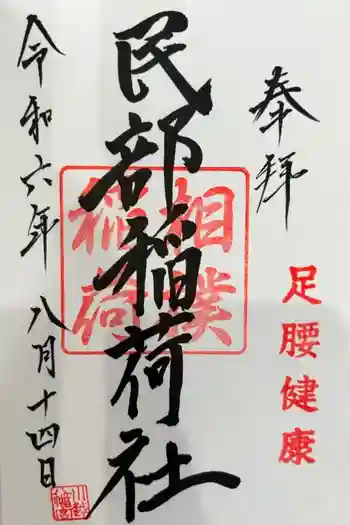 奉拝
足腰健康
民部稲荷社
相撲
稲荷
令和六年八月十四日